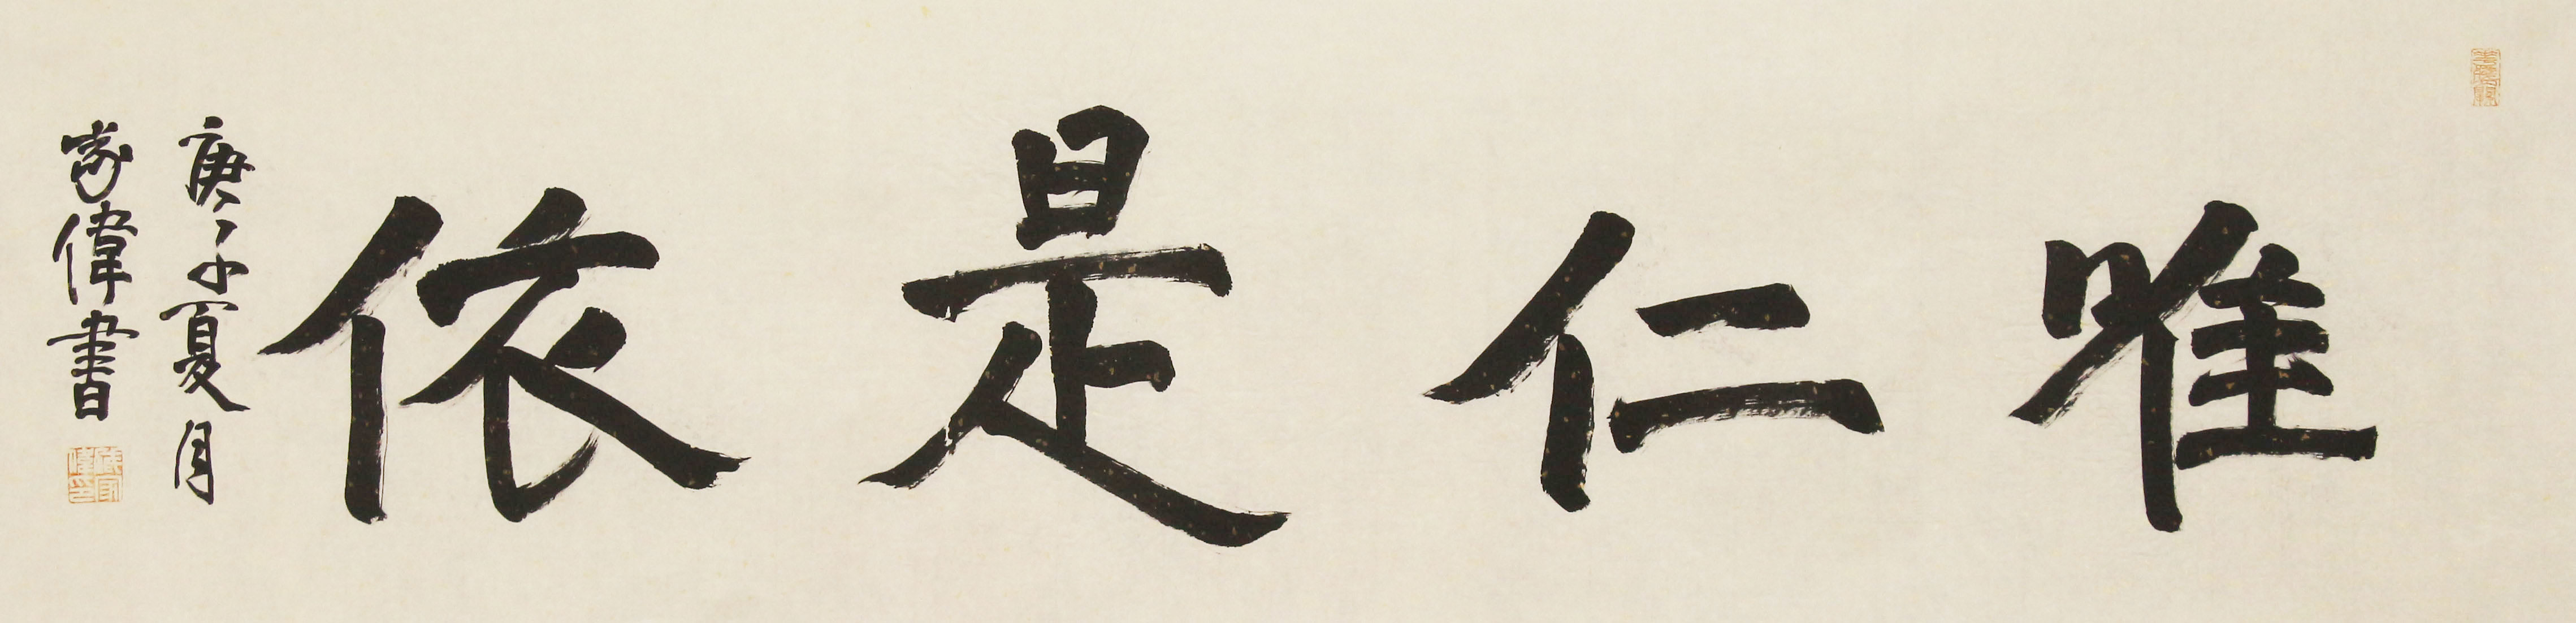 唯仁是依
庚子夏月
家偉書